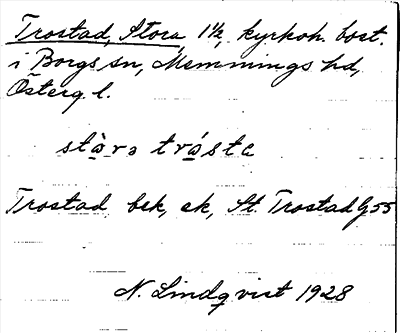 Trostad, Stora, 1½, kyrkoh. bost.
i Borgs sn, Memmings hd,
Österg. l.
stὰrə trǻsta
Trostad bek, ek, St. Trostad G55
N. Lindqvist 1928